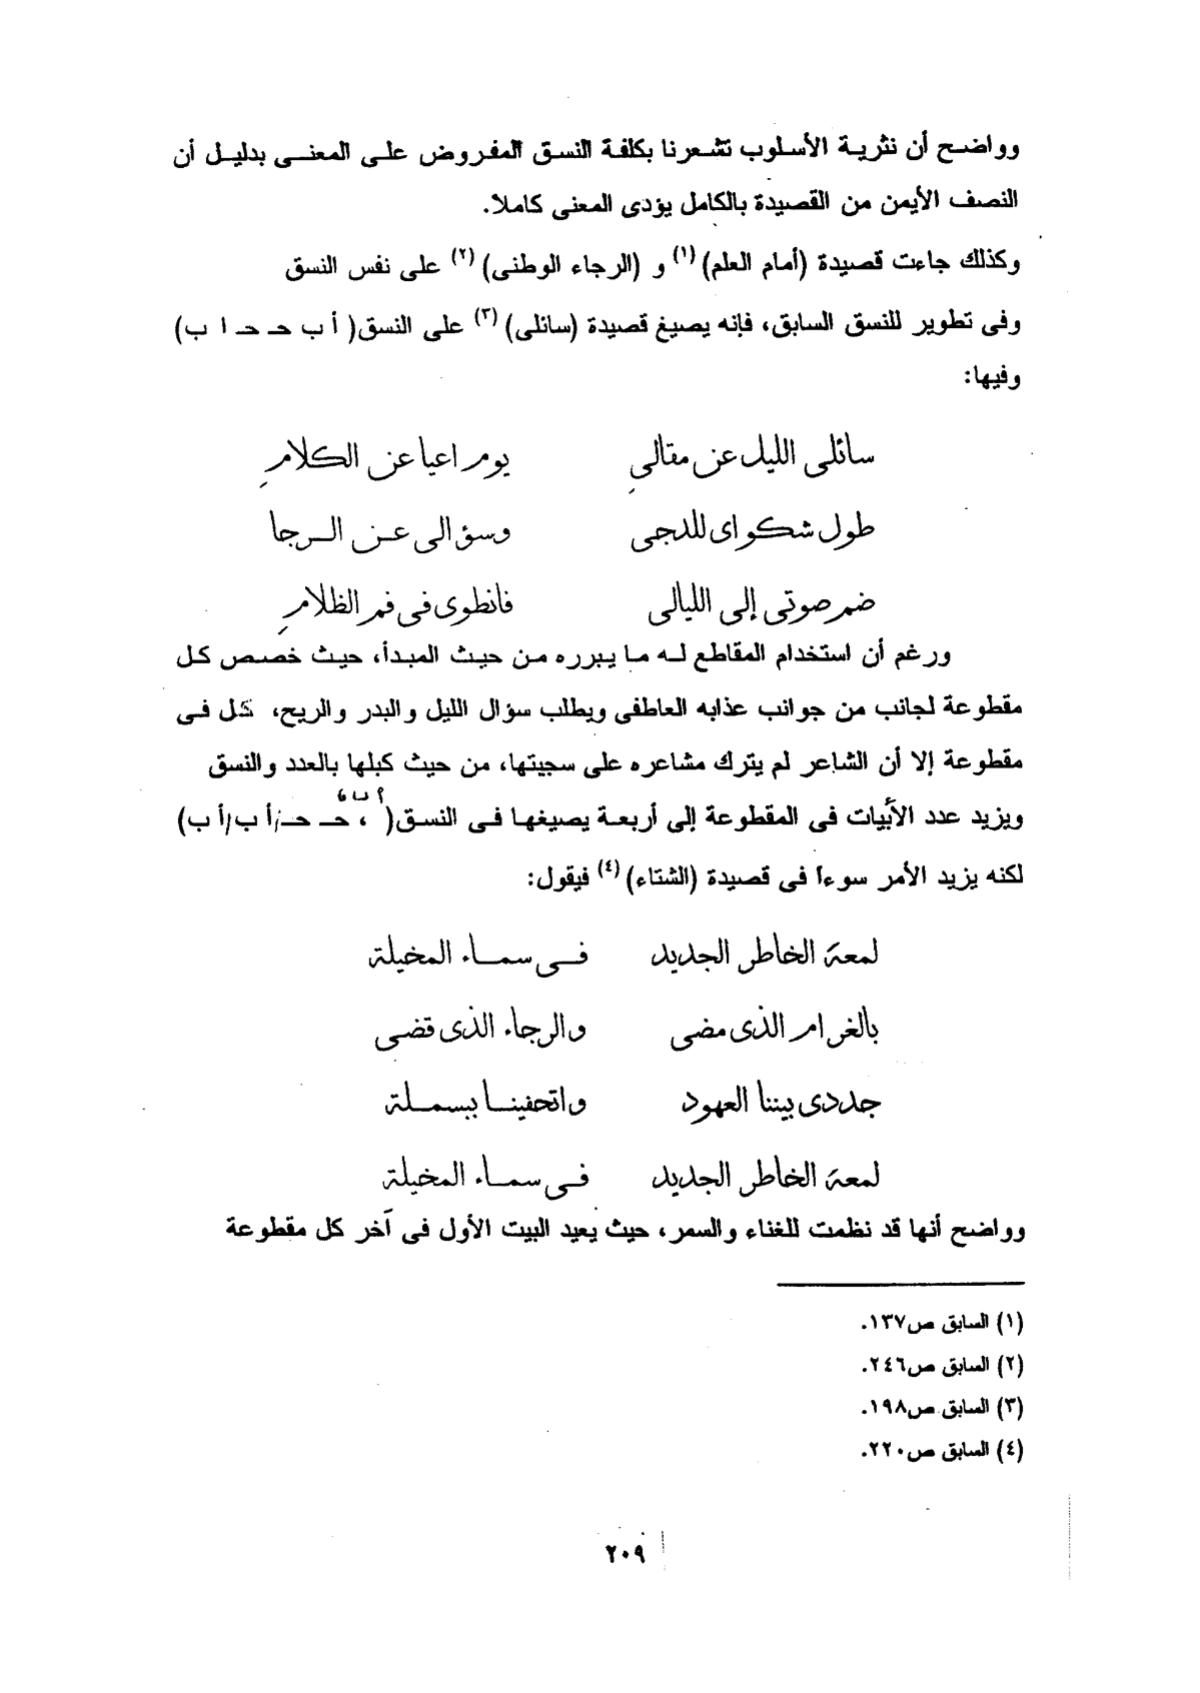 وواضح أن نثرية الأسلوب تشعرنا بكلفة النسق المفروض على المعنى بدليل أن
النصف الأيمن من القصيدة بالكامل يؤدى المعنى كاملا.
وكذلك جاءت قصيدة (أمام العلم) (١) و (الرجاء الوطنى) (٢) على نفس النسق
وفى تطوير للنسق السابق، فإنه يصيغ قصيدة (سائلى) (٣) على النسق( أ ب حـ حـ ا ب)
وفيها:
سائلى الليل عن مقالىِ يوم اعيا عن الكلامِ
طول شكواى للدجى وسؤالى عن الرجا
ضم صوتى إلى الليالى فانطوى فى فم الظلامِ
ورغم أن استخدام المقاطع له ما يبرره من حيث المبدأ، حيث خصص كل
مقطوعة لجانب من جوانب عذابه العاطفى ويطلب سؤال الليل والبدر والريح، كل فى
مقطوعة إلا أن الشاعر لم يترك مشاعره على سجيتها، من حيث كبلها بالعدد والنسق
ويزيد عدد الأبيات فى المقطوعة إلى أربعة يصيغها فى النسق( أ ب، حـ حـ/أ ب/أ ب)
لكنه يزيد الأمر سوءاً فى قصيدة (الشتاء) (٤) فيقول:
لمعة الخاطر الجديد فى سماء المخيلة
بالغرام الذى مضى والرجاء الذى قضى
جددى بيننا العهود واتحفينا ببسملة
لمعة الخاطر الجديد فى سماء المخيلة
وواضح أنها قد نظمت للغناء والسمر، حيث يعيد البيت الأول فى آخر كل مقطوعة
(١) السابق ص١٣٧.
(٢) السابق ص٢٤٦.
(٣) السابق ص١٩٨.
(٤) السابق ص٢٢٠.
٢٠٩